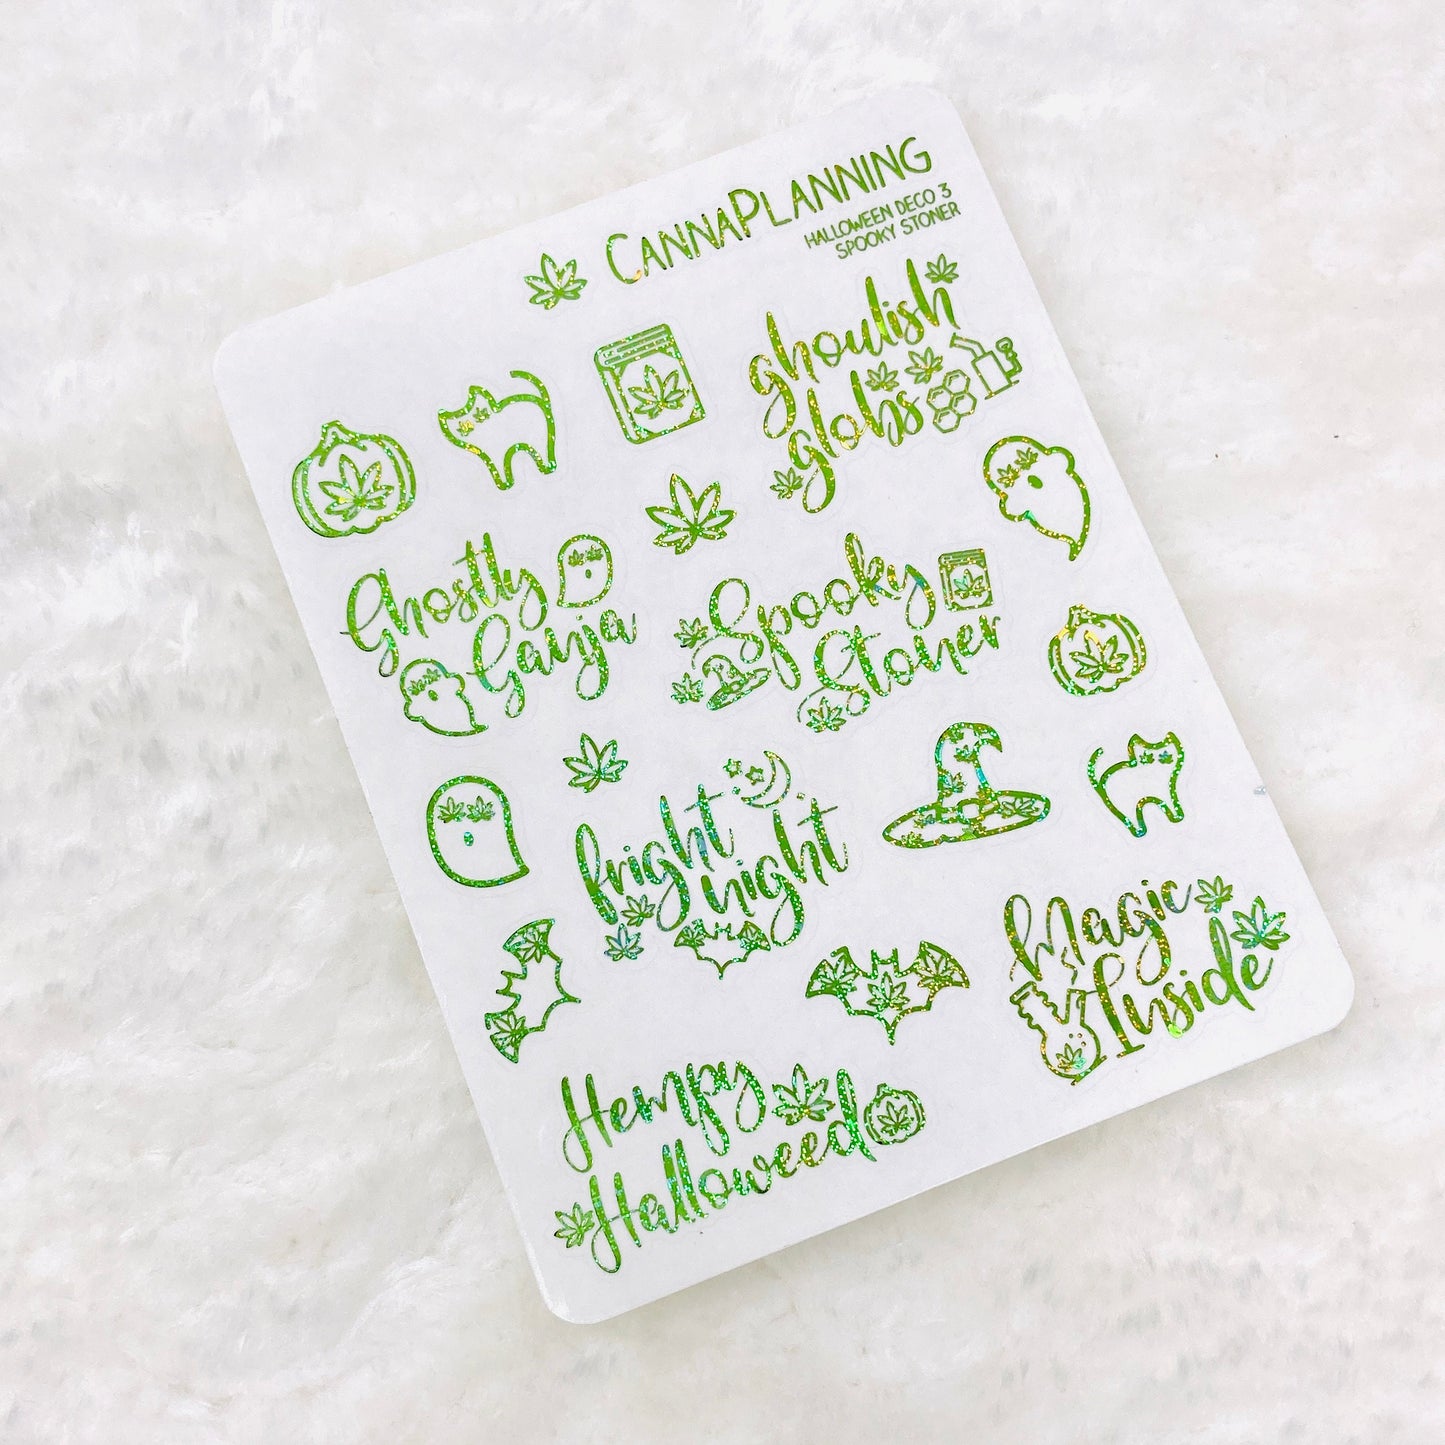 CANNAPLANNING
HALLOWEEN DECO 3
SPOOKY STONER
ghoulish
globs
Ghostly
Ganja
Spooky
Stoner
fright
night
Magic
Inside
Hempy
Halloweed